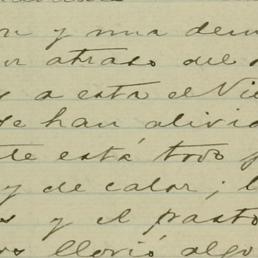 y una
atraso del
a esta el Vie
se han alivia
te está todo p
y de calor; l
s y el pasto
os llovió algo